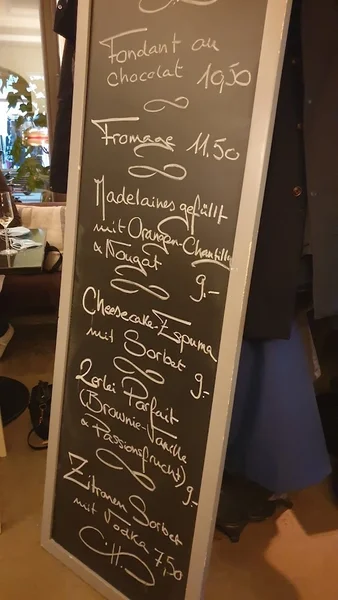 Fondant au
chocolat 10,50
Fromage 11.50
Madelaines gefüllt
mit Orangen-Chantilly
& Nougat
9.-
Cheesecake-Espuma
mit Sorbet 9.-
2erlei Parfait
(Brownie-Vanille
& Passionsfrucht) 9.-
Zitronen Sorbet
mit Vodka 7,50